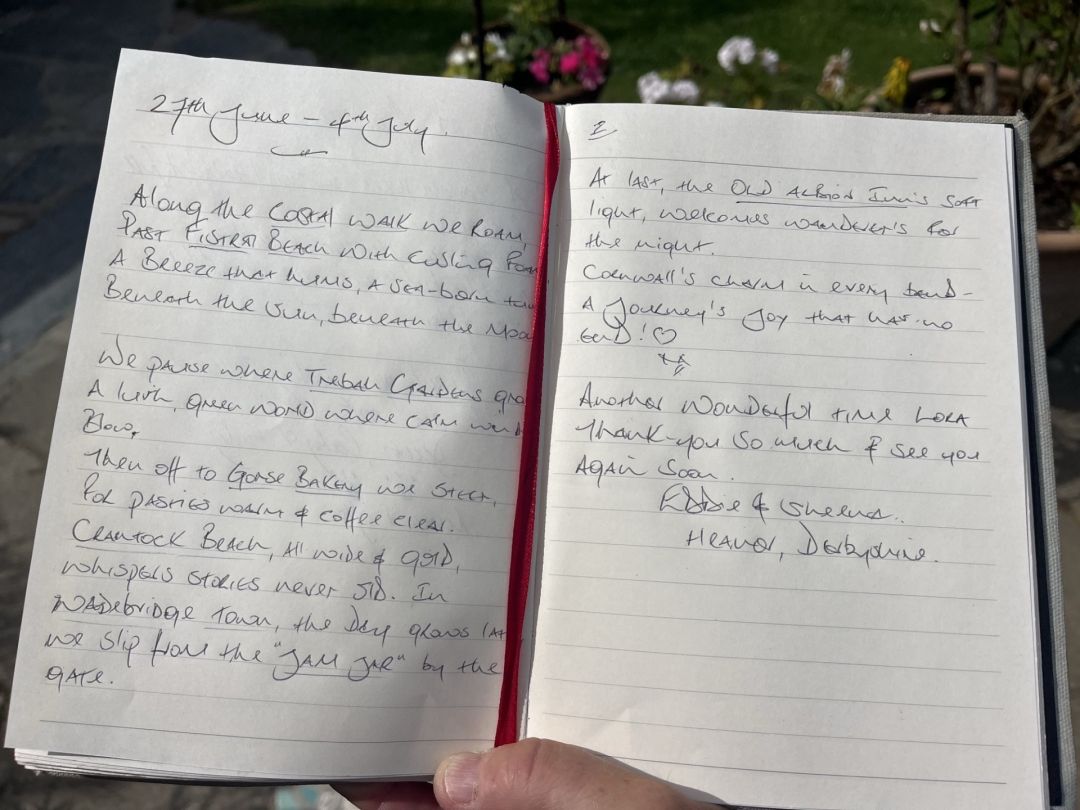 27th June - 4th July.
Along the Costal walk we Roam,
Past Fistral Beach with Curling Foam
A Breeze that hums, a sea-born tune
Beneath the Sun, beneath the Moon
We pause where Trebah Gardens grow
A lush, green world where calm winds
Blow,
Then off to Gorse Bakery we steer,
For pasties warm & coffee clear.
Crantock Beach, all wide & gold,
whispers stories never old. In
Wadebridge Town, the Day glows late
we slip from the "Jam Jar" by the
gate.
2
At last, the Old Albion Inn's soft
light, welcomes wanderer's for
the night.
Cornwall's charm in every bend -
A Journey's Joy that has no
end! ♡
Another wonderful time Lora
Thank-you so much & see you
Again Soon.
Eddie & Sheena.
Heanor, Derbyshire.